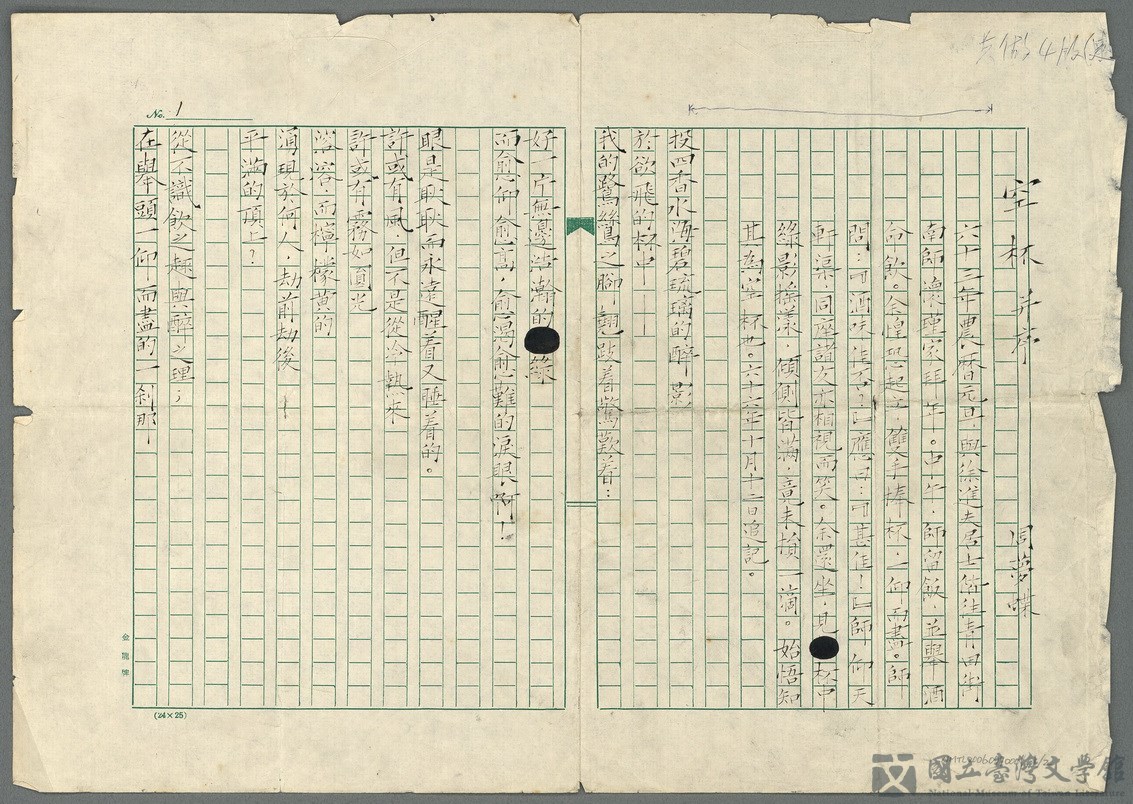 共做4版
空杯 并序
周夢蝶
六十三年農曆元旦，與徐進夫居士偕往青田街
南師懷瑾家拜年。中午，師留飲，並舉酒
命飲。余惶恐起立，雙手捧杯，一仰而盡。師
問：「酒味佳否？」應曰：「甚佳！」師仰天
軒渠，同座諸友亦相視而笑。余還坐，見杯中
綠影搖漾，傾側皆滿，竟未損一滴。始悟知
其為空杯也。六十六年十月十二日追記。
投四香水海碧琉璃的醉影
於欲飛的杯中——
我的鷺鷥鷥之腳，翹跂着驚歎着：
好一片無邊浩瀚的綠
而愈仰愈高，愈渴愈難的淚眼，啊！
眼是耿耿而永遠醒着又睡着的。
許或有風，但不是從冷熱來
許或有霧如頂光
溶溶，而檸檬黃的
湧現於何人，劫前劫後——
平滿的頂上？
從不識飲之趣與醉之理；
在舉頭一仰，而盡的一剎那——
No. 1
(24×25)
金龍牌
國立臺灣文學館
National Museum of Taiwan Literature